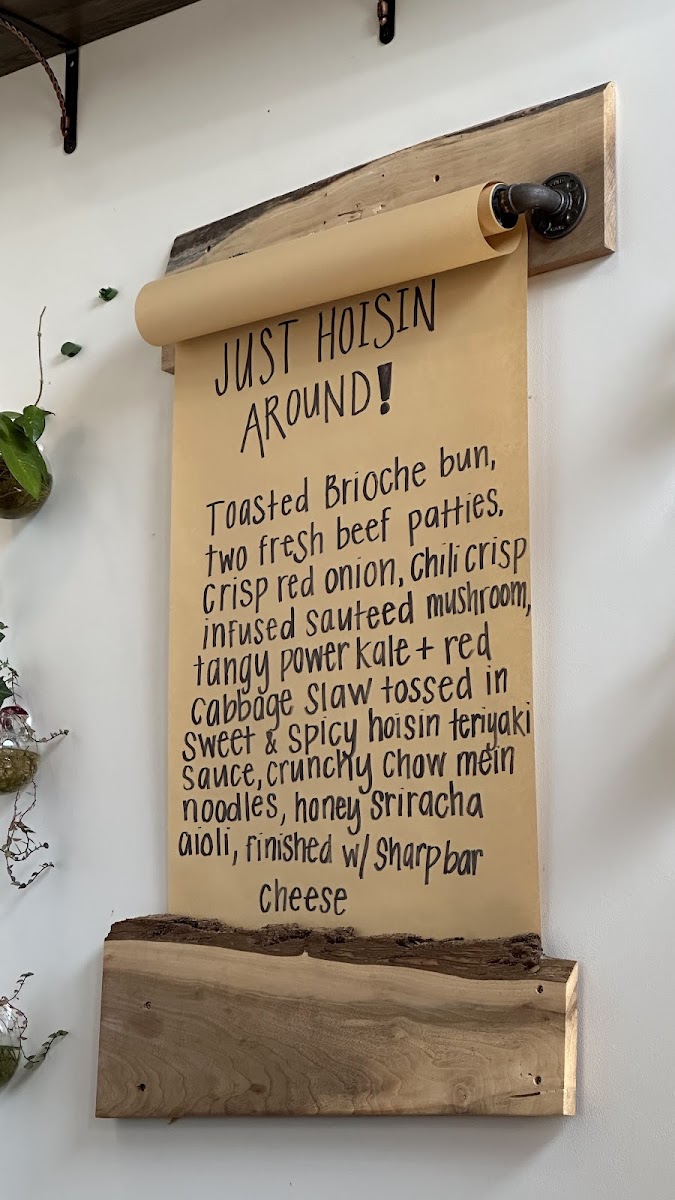 JUST HOISIN
AROUND!
Toasted Brioche bun,
two fresh beef patties,
crisp red onion, Chili crisp
infused sauteed mushroom,
tangy power kale + red
cabbage slaw tossed in
sweet & spicy hoisin teriyaki
sauce, crunchy chow mein
noodles, honey Sriracha
aioli, finished w/ Sharp bar
cheese